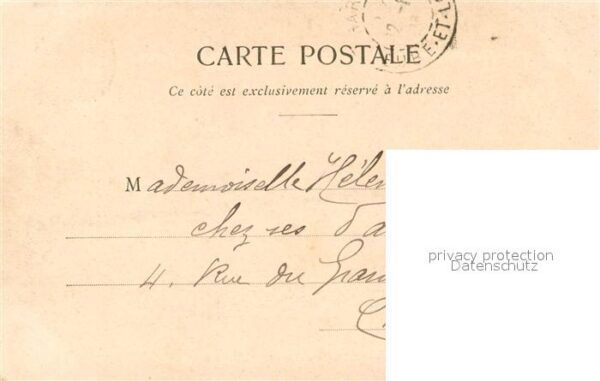 CARTE POSTALE
Ce côté est exclusivement réservé à l'adresse
Mademoiselle
chez ses
4. Rue du
privacy protection
Datenschutz